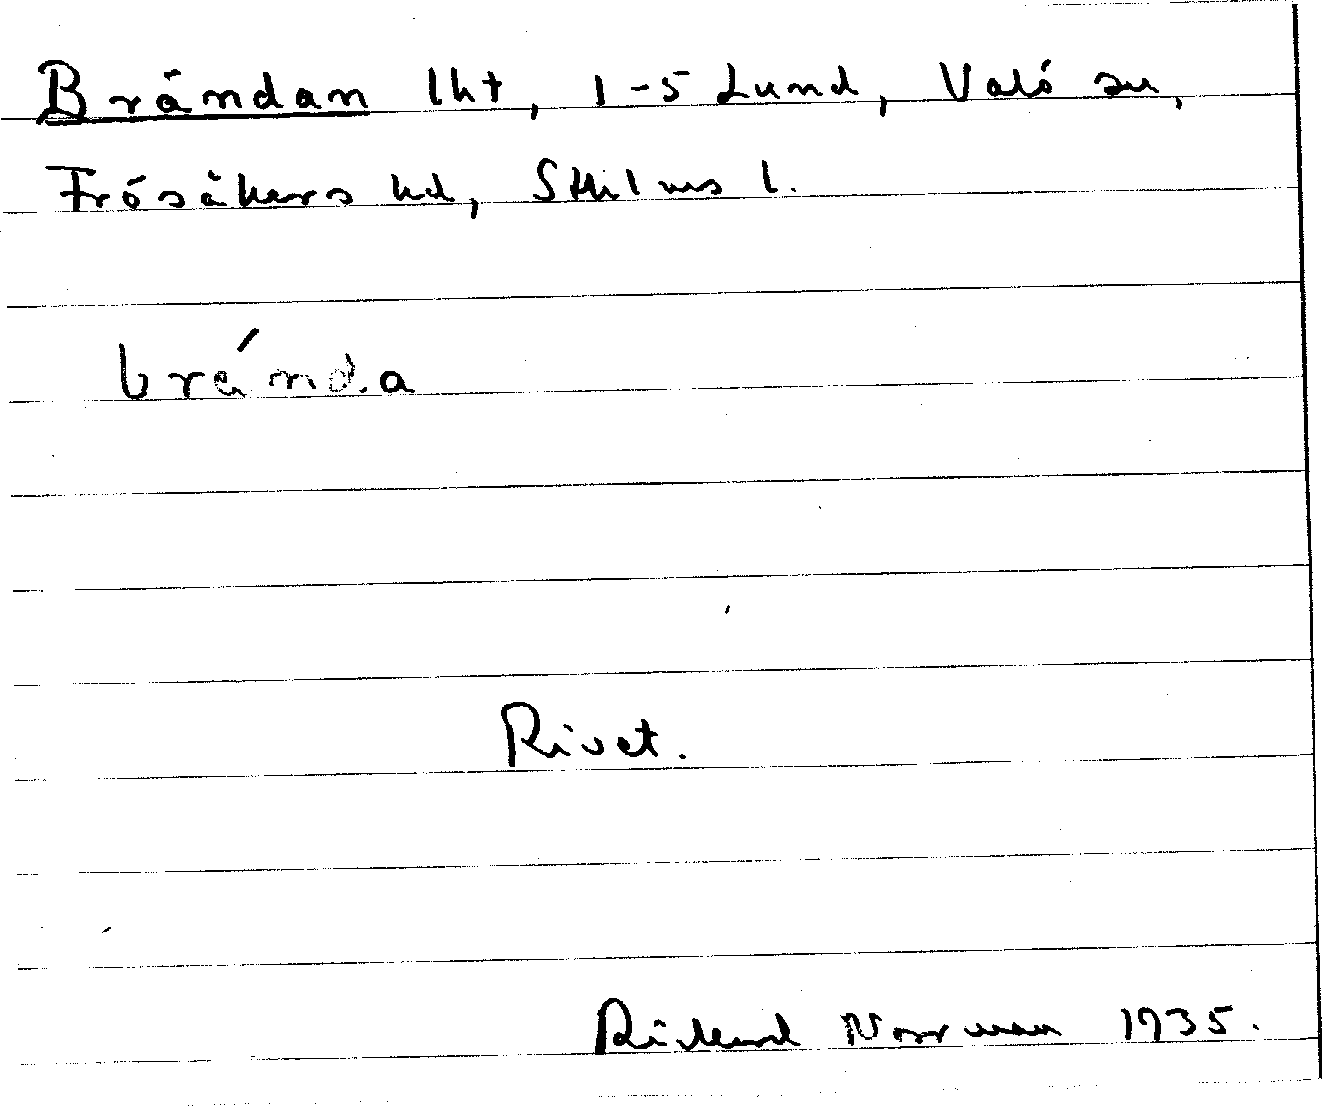 Brändan lht, 1-5 Lund, Valö sn,
Frösåkers hd, Sthlms l.
brä́nda
Rivet.
Rickard Norrman 1935.